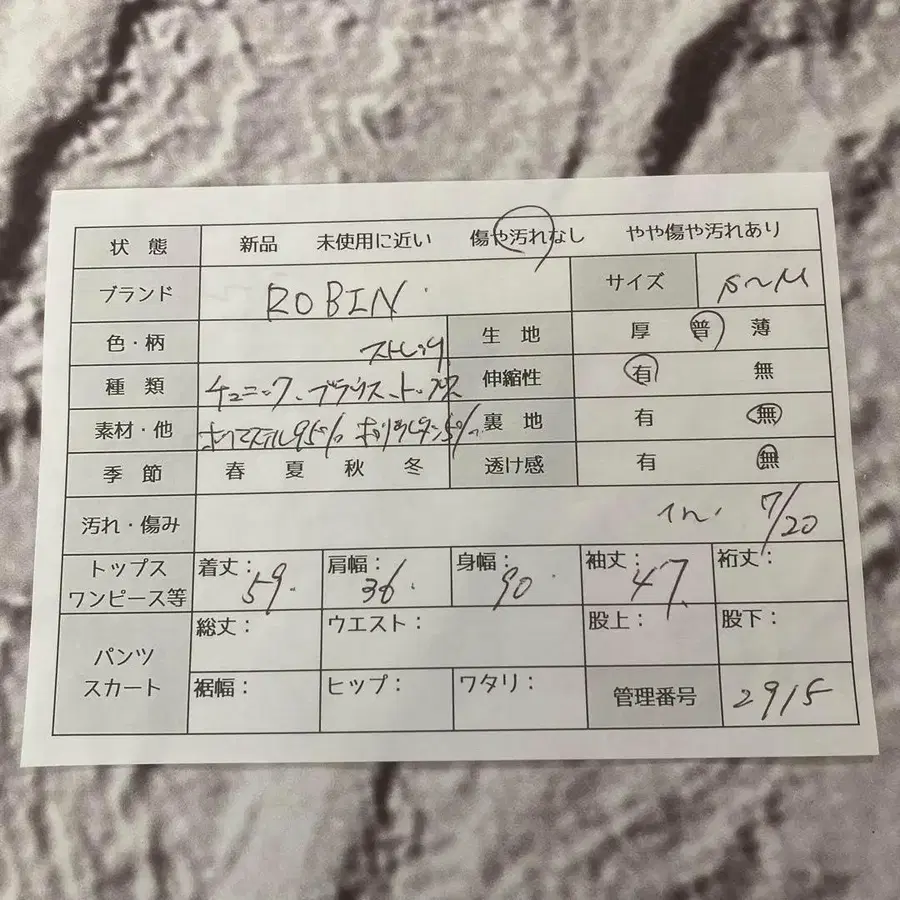 状態 新品 未使用に近い 傷や汚れなし やや傷や汚れあり
ブランド ROBIN サイズ S〜M
色・柄 ストレッチ 生地 厚 普 薄
種類 チュニック、ブラウス、トップス 伸縮性 有 無
素材・他 ポリエステル95% ポリウレタン5% 裏地 有 無
季節 春 夏 秋 冬 透け感 有 無
汚れ・傷み 7/20
トップス ワンピース等 着丈: 59. 肩幅: 36. 身幅: 90. 袖丈: 47. 裄丈:
パンツ スカート 総丈: ウエスト: 股上: 股下:
裾幅: ヒップ: ワタリ: 管理番号 2915